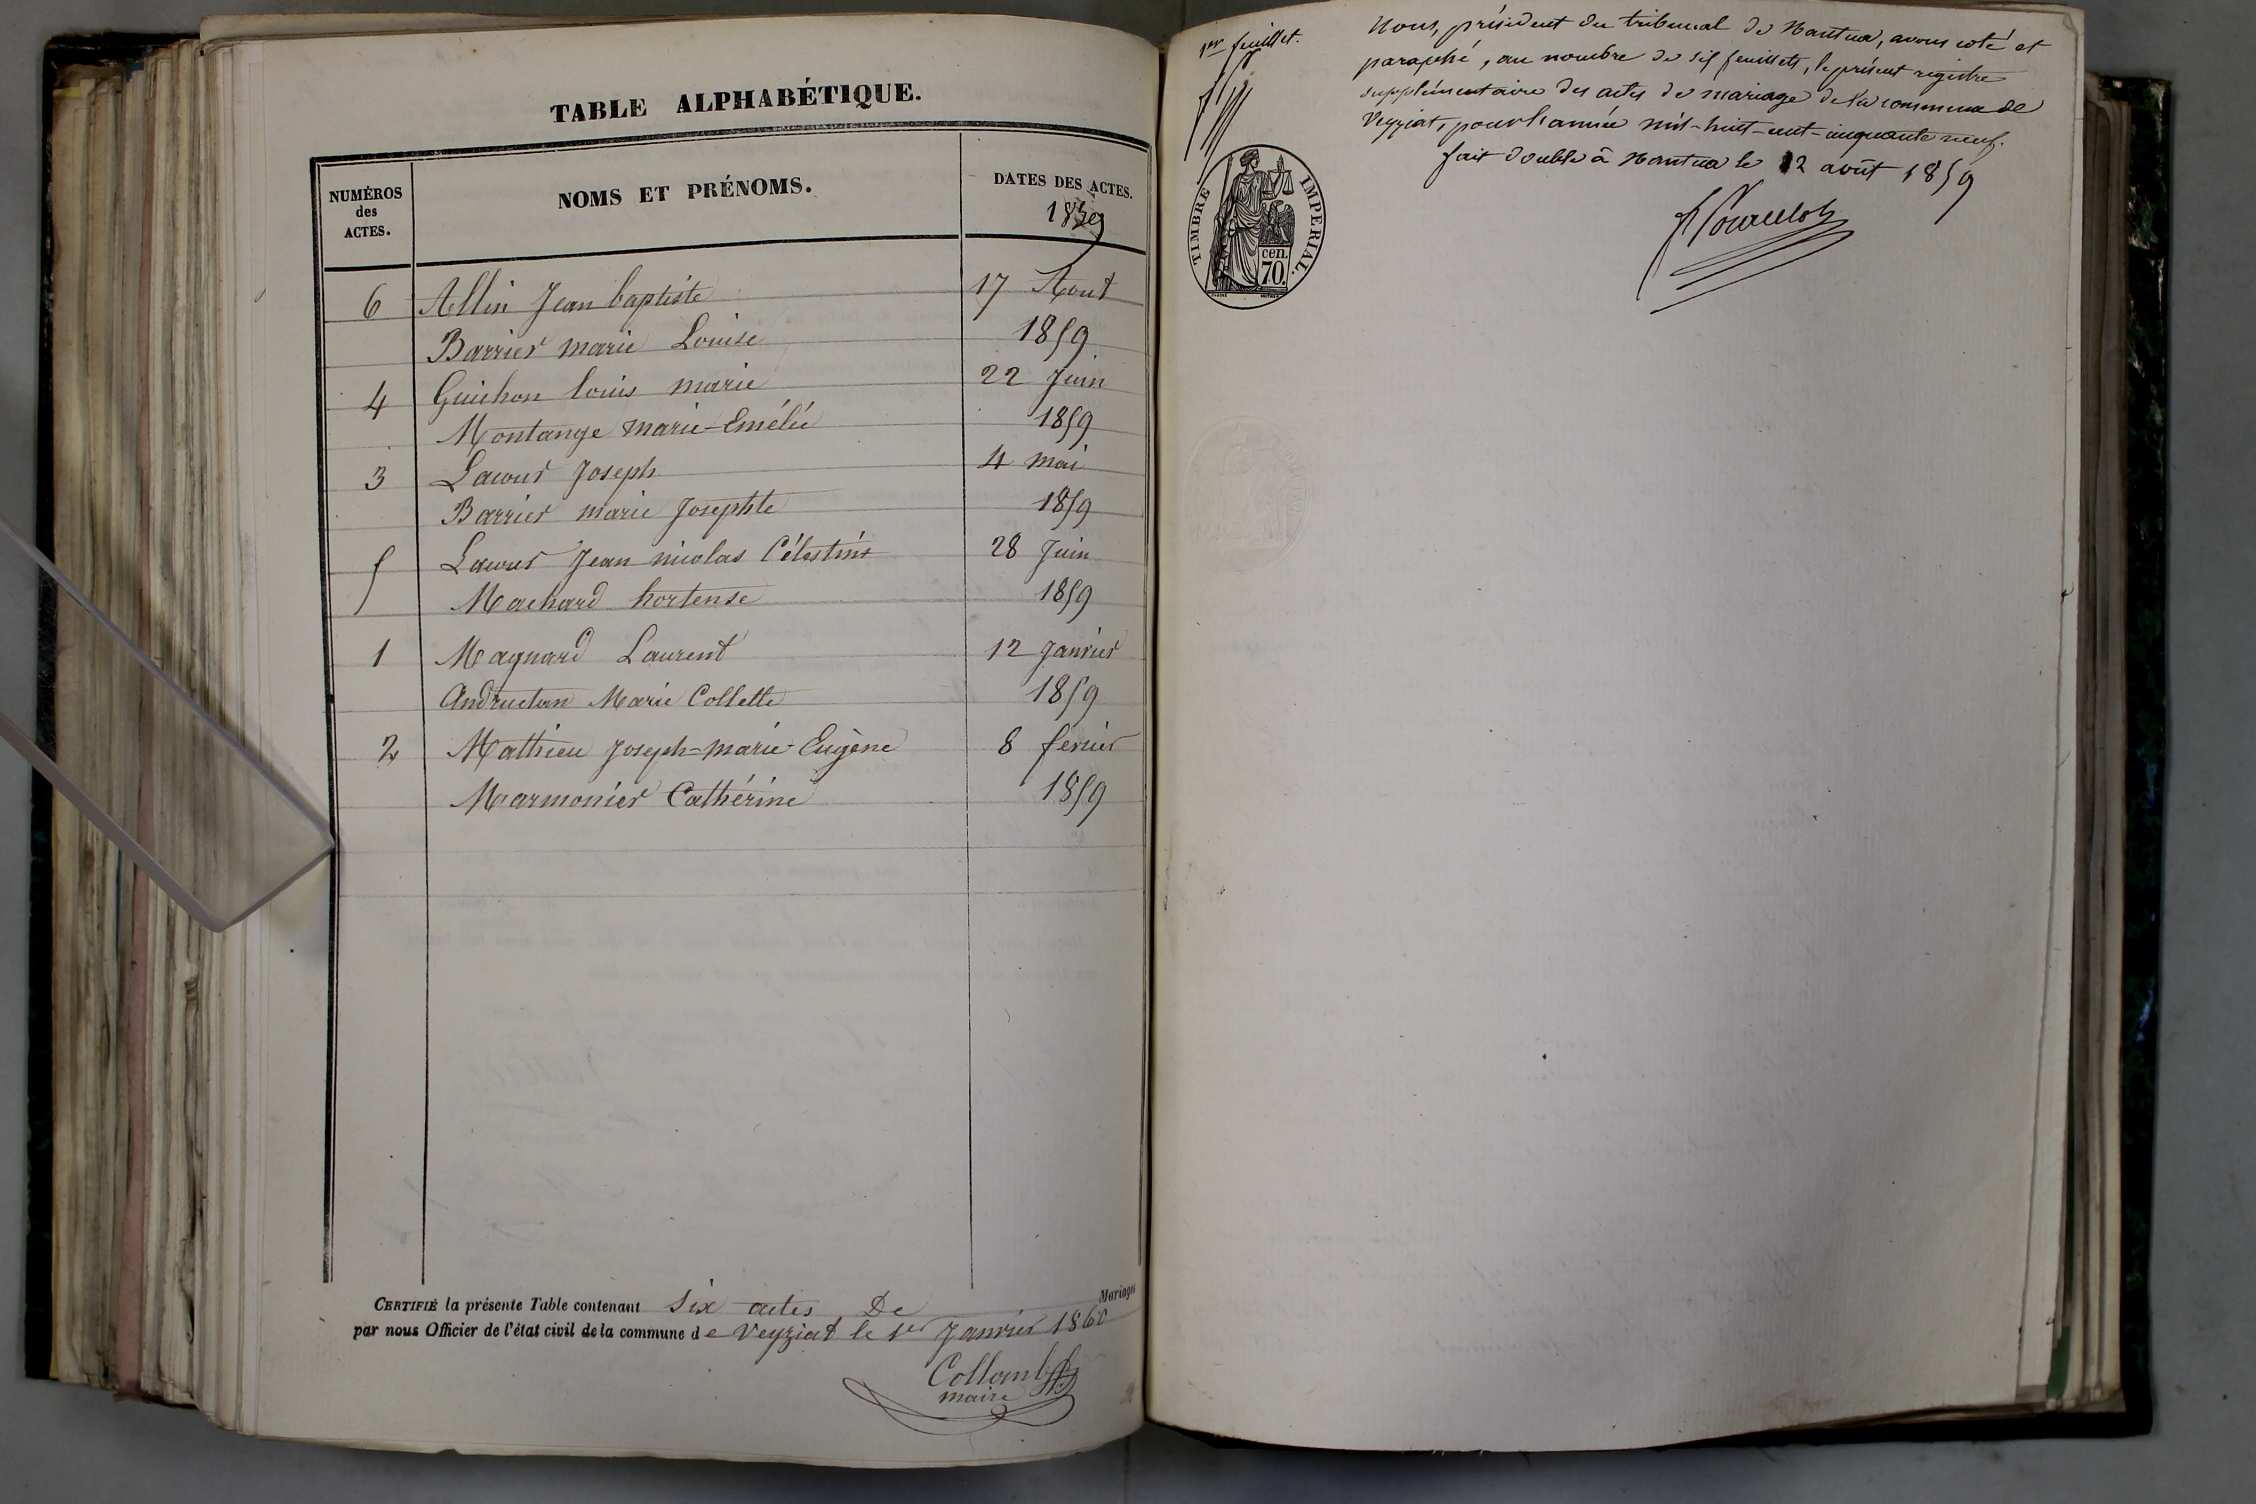 TABLE ALPHABÉTIQUE.
NUMÉROS
des
ACTES.
NOMS ET PRÉNOMS.
DATES DES ACTES.
1859
6 Allin Jean baptiste 17 Aout
Barrier marie Louise 1859
4 Guichon louis marie 22 Juin
Montange marie-Emélie 1859
3 Lacour Joseph 4 mai
Barrier marie Josephte 1859
5 Lacour Jean nicolas Célestin 28 Juin
Machard hortense 1859
1 Magnard Laurent 12 Janvier
Marie Collette 1859
2 Mathieu Joseph-marie-Eugène 8 fevrier
Marmonier Cathérine 1859
CERTIFIÉ la présente Table contenant Six actes De Mariages
par nous Officier de l'état civil de la commune de Veyziat le 1er Janvier 1860
Collomb
maire
1er feuillet.
Nous, président du tribunal de Nantua, avons coté et
paraphé, au nombre de six feuillets, le présent registre
supplémentaire des actes de mariage de la commune de
Veyziat, pour l'année mil-huit-cent-cinquante neuf.
fait double à Nantua le 12 août 1859
TIMBRE IMPERIAL.
cen.
70.